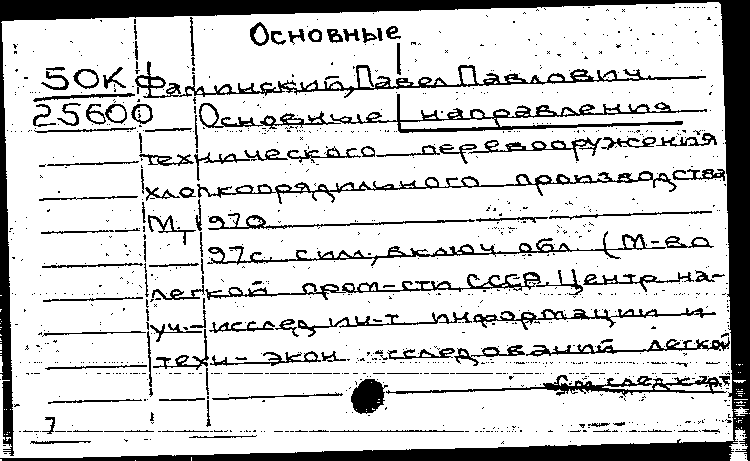 Основные
50К Фаминский, Павел Павлович.
25600 Основные направления
технического перевооружения
хлопкопрядильного производства
М, 1970
97с. с илл, включ обл. (М-во
легкой пром-сти СССР. Центр на-
уч.-исслед ин-т информации и
техн-экон исследований легкой
См след карт
7